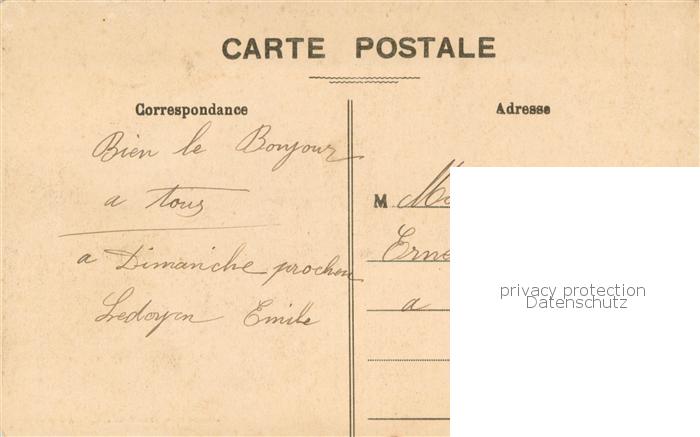 CARTE POSTALE
Correspondance
Adresse
Bien le Bonjour
a tous
a Dimanche prochein
Ledoyen Emile
M
Erne
a
privacy protection
Datenschutz